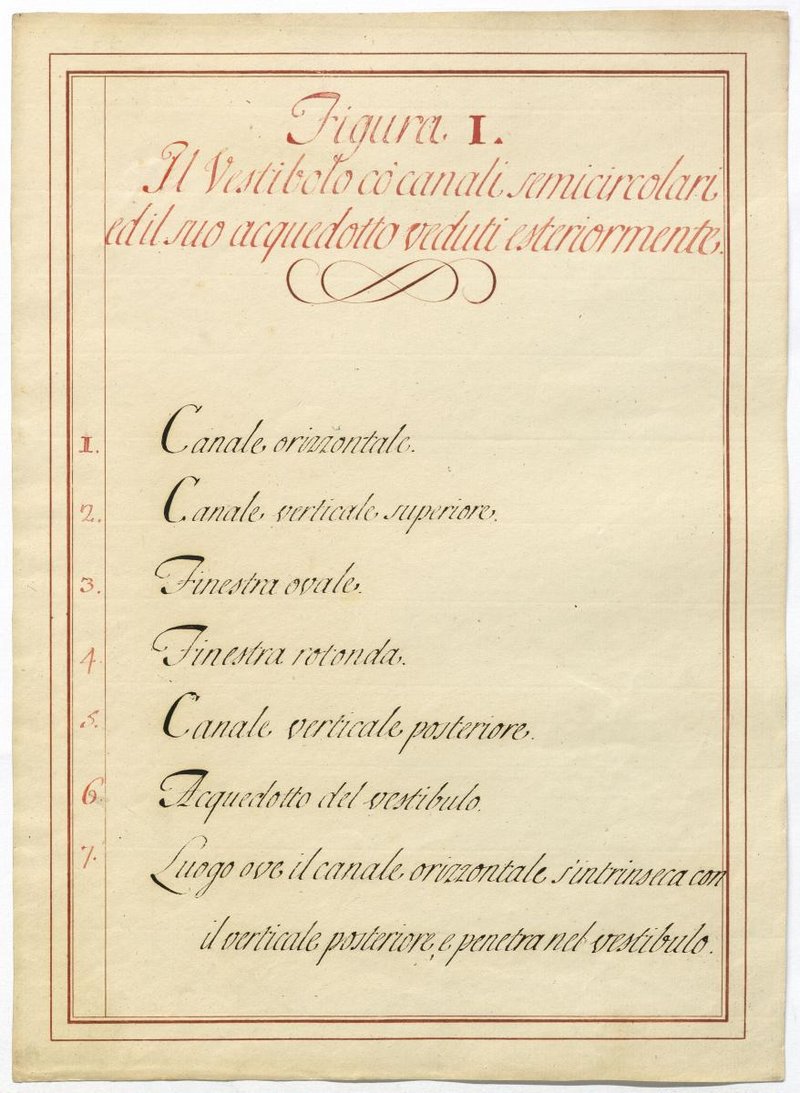 Figura I.
Il Vestibolo cò canali semicircolari
ed il suo acquedotto veduti esteriormente.
1. Canale orizzontale.
2. Canale verticale superiore.
3. Finestra ovale.
4. Finestra rotonda.
5. Canale verticale posteriore.
6. Acquedotto del vestibulo.
7. Luogo ove il canale orizzontale s'intrinseca con
il verticale posteriore, e penetra nel vestibulo.